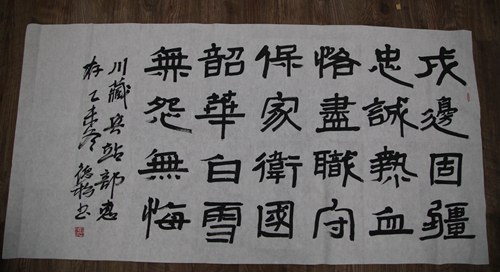 戍邊固疆
忠誠熱血
恪盡職守
保家衛國
韶華白雪
無怨無悔
川藏兵站部惠
存乙未冬
書